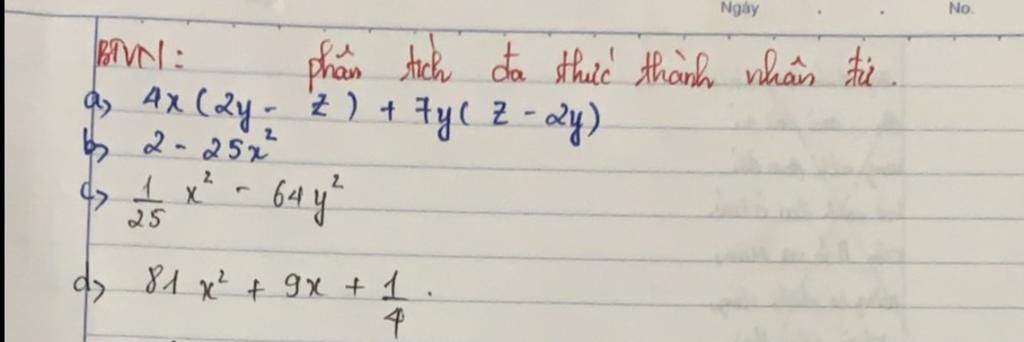 Ngày . . No.
BTVN: phân tích đa thức thành nhân tử.
a> 4x(2y - z) + 7y(z - 2y)
b> 2 - 25x²
c> 1/25 x² - 64y²
d> 81x² + 9x + 1/4.